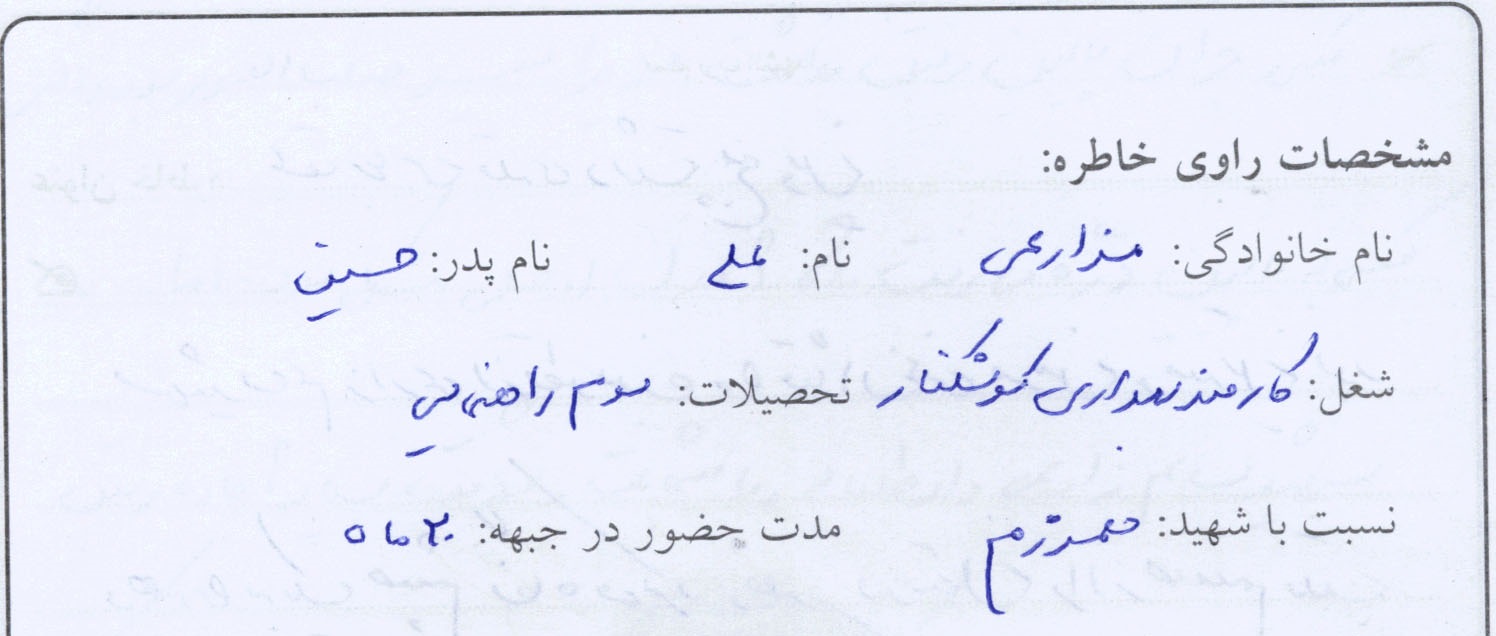 مشخصات راوی خاطره:
نام خانوادگی: مزارعی نام: علی نام پدر: حسین
شغل: کارمند بهداری کوشکنار تحصیلات: سوم راهنمایی
نسبت با شهید: همرزم مدت حضور در جبهه: ۲۰ ماه